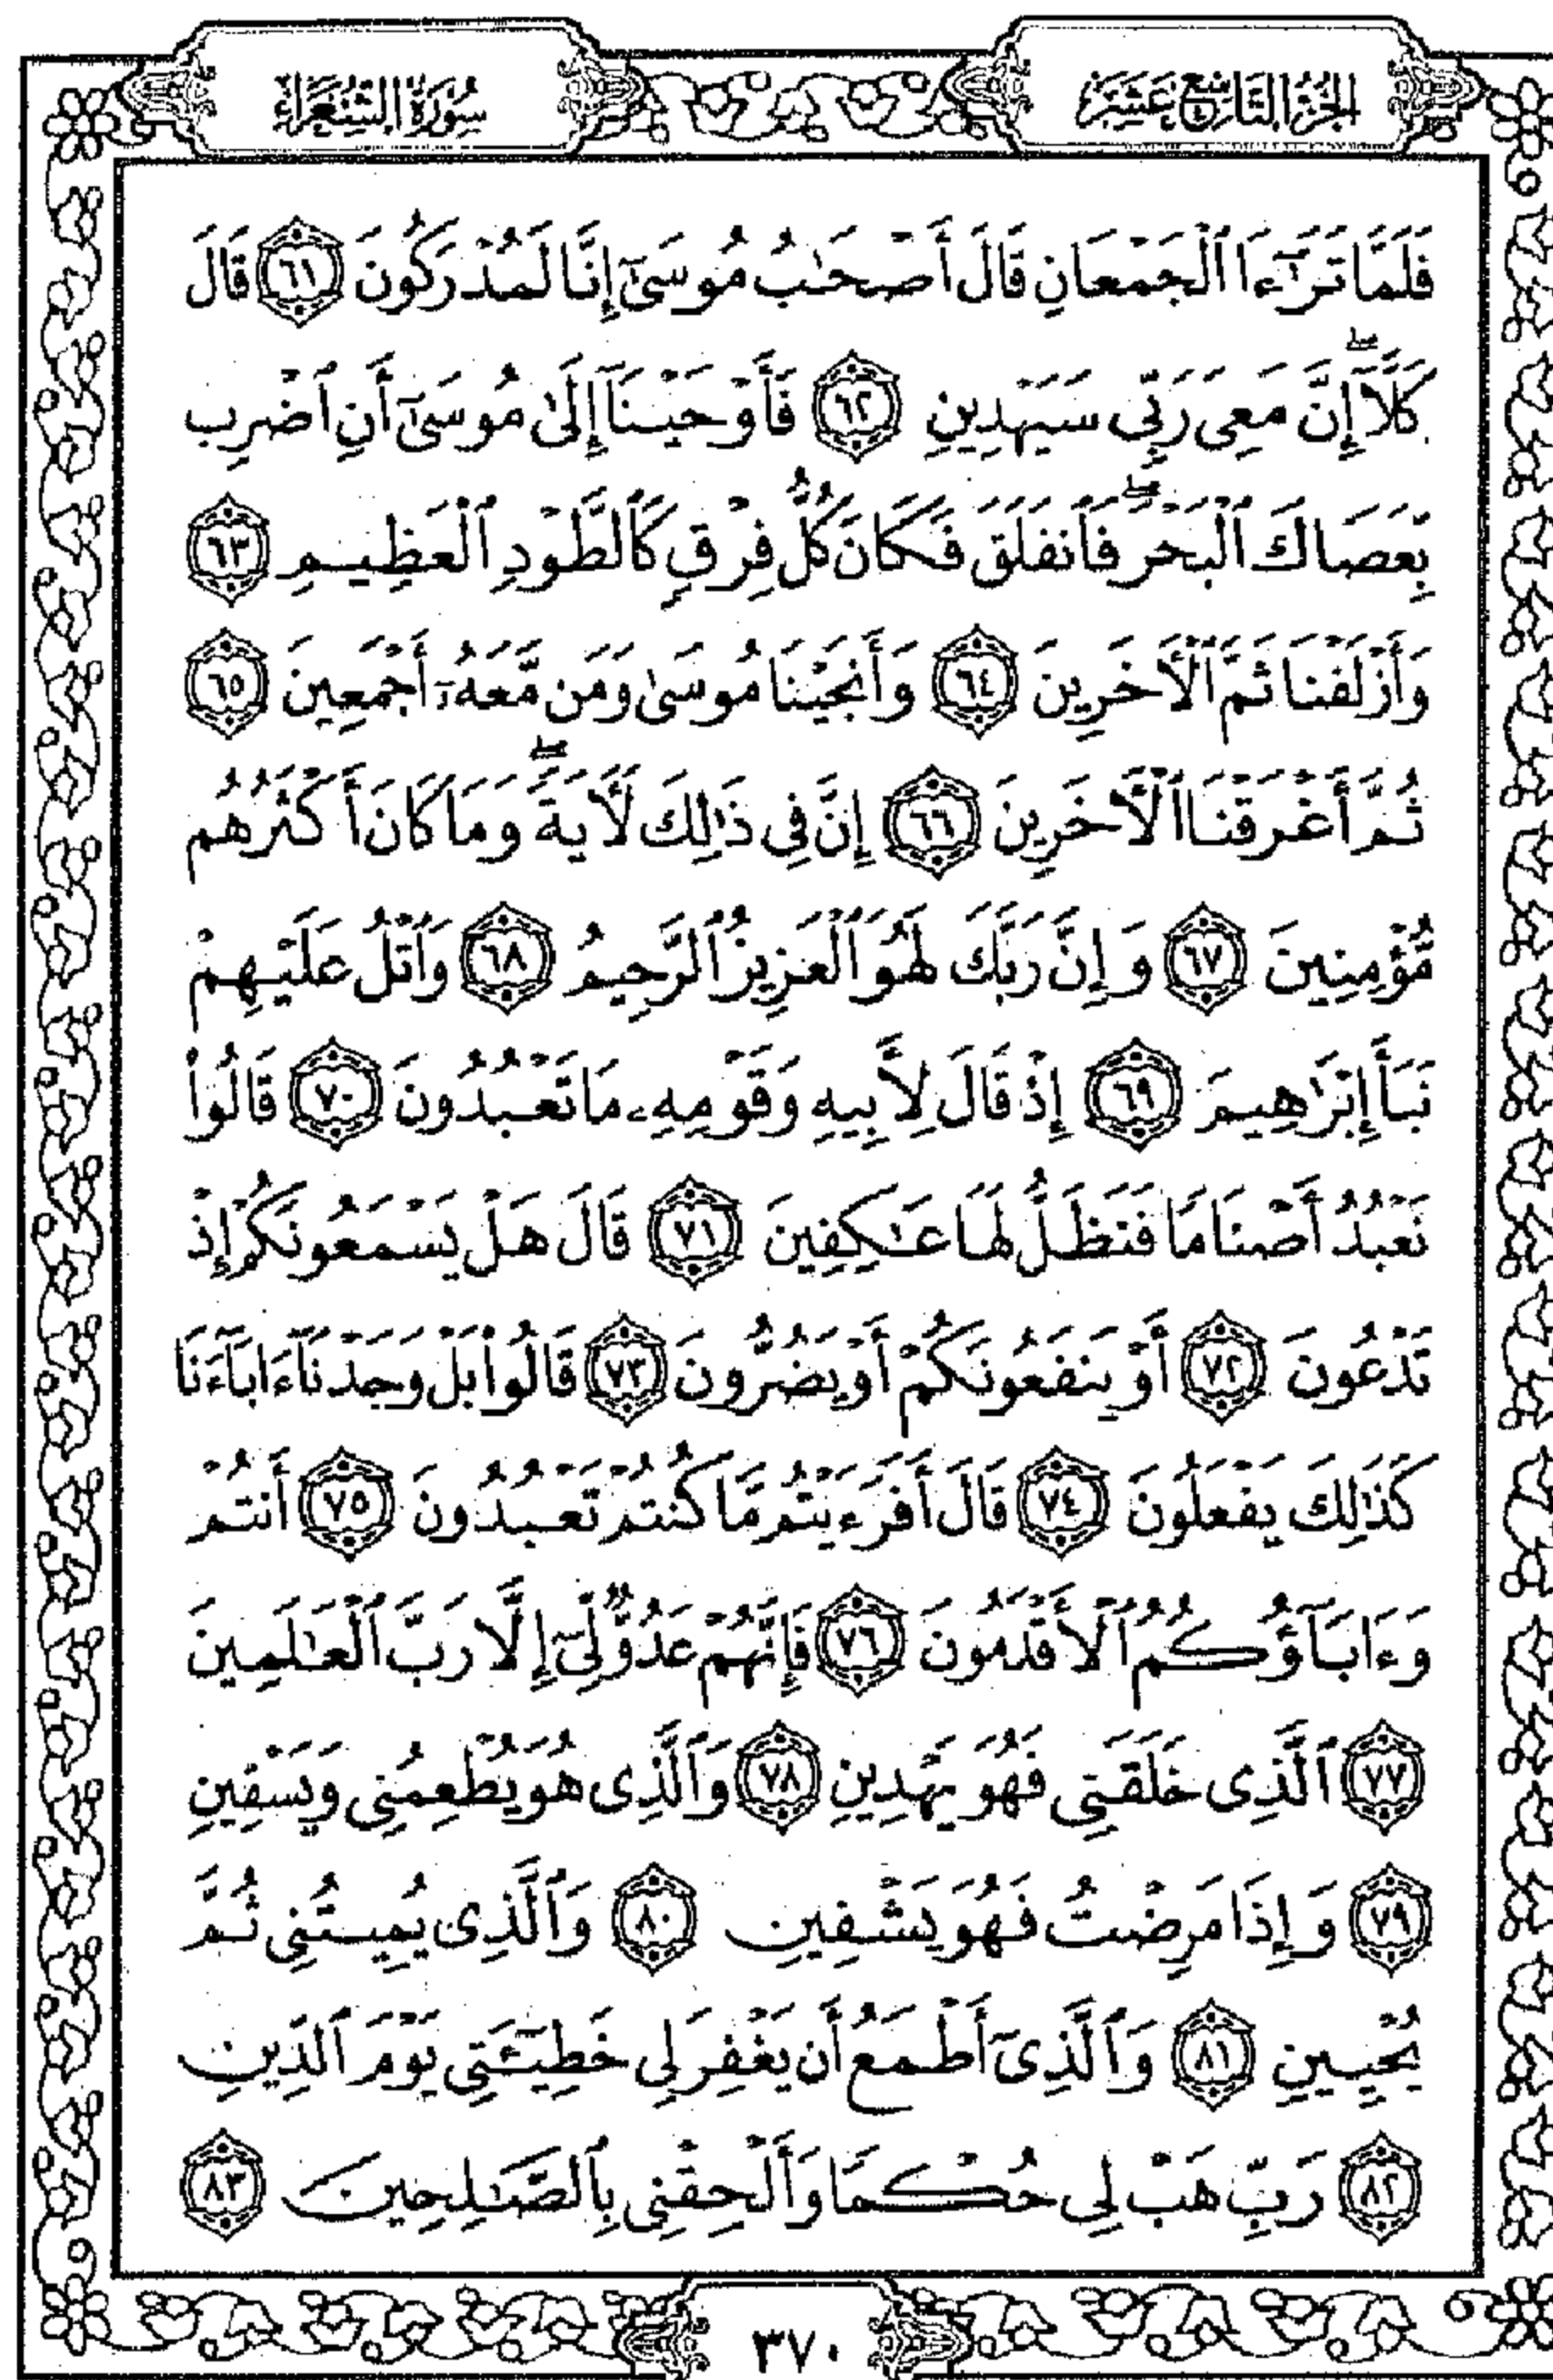 الجزء التاسع عشر
سورة الشعراء
فَلَمَّا تَرَٰٓءَا ٱلْجَمْعَانِ قَالَ أَصْحَٰبُ مُوسَىٰٓ إِنَّا لَمُدْرَكُونَ ٦١ قَالَ
كَلَّآ ۖ إِنَّ مَعِىَ رَبِّى سَيَهْدِينِ ٦٢ فَأَوْحَيْنَآ إِلَىٰ مُوسَىٰٓ أَنِ ٱضْرِب
بِّعَصَاكَ ٱلْبَحْرَ ۖ فَٱنفَلَقَ فَكَانَ كُلُّ فِرْقٍ كَٱلطَّوْدِ ٱلْعَظِيمِ ٦٣
وَأَزْلَفْنَا ثَمَّ ٱلْأَخَرِينَ ٦٤ وَأَنجَيْنَا مُوسَىٰ وَمَن مَّعَهُۥٓ أَجْمَعِينَ ٦٥
ثُمَّ أَغْرَقْنَا ٱلْأَخَرِينَ ٦٦ إِنَّ فِى ذَٰلِكَ لَأَيَةً ۖ وَمَا كَانَ أَكْثَرُهُم
مُّؤْمِنِينَ ٦٧ وَإِنَّ رَبَّكَ لَهُوَ ٱلْعَزِيزُ ٱلرَّحِيمُ ٦٨ وَٱتْلُ عَلَيْهِمْ
نَبَأَ إِبْرَٰهِيمَ ٦٩ إِذْ قَالَ لِأَبِيهِ وَقَوْمِهِۦ مَا تَعْبُدُونَ ٧٠ قَالُوا۟
نَعْبُدُ أَصْنَامًا فَنَظَلُّ لَهَا عَٰكِفِينَ ٧١ قَالَ هَلْ يَسْمَعُونَكُمْ إِذْ
تَدْعُونَ ٧٢ أَوْ يَنفَعُونَكُمْ أَوْ يَضُرُّونَ ٧٣ قَالُوا۟ بَلْ وَجَدْنَآ ءَابَآءَنَا
كَذَٰلِكَ يَفْعَلُونَ ٧٤ قَالَ أَفَرَءَيْتُم مَّا كُنتُمْ تَعْبُدُونَ ٧٥ أَنتُمْ
وَءَابَآؤُكُمُ ٱلْأَقْدَمُونَ ٧٦ فَإِنَّهُمْ عَدُوٌّ لِّىٓ إِلَّا رَبَّ ٱلْعَٰلَمِينَ
٧٧ ٱلَّذِى خَلَقَنِى فَهُوَ يَهْدِينِ ٧٨ وَٱلَّذِى هُوَ يُطْعِمُنِى وَيَسْقِينِ
٧٩ وَإِذَا مَرِضْتُ فَهُوَ يَشْفِينِ ٨٠ وَٱلَّذِى يُمِيتُنِى ثُمَّ
يُحْيِينِ ٨١ وَٱلَّذِىٓ أَطْمَعُ أَن يَغْفِرَ لِى خَطِيٓـَٔتِى يَوْمَ ٱلدِّينِ
٨٢ رَبِّ هَبْ لِى حُكْمًا وَأَلْحِقْنِى بِٱلصَّٰلِحِينَ ٨٣
٣٧٠